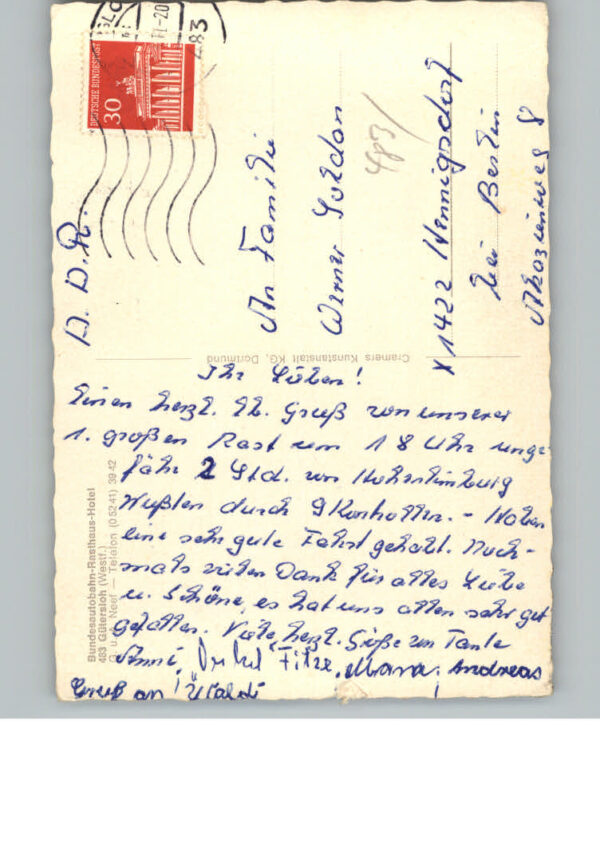 DEUTSCHE BUNDESPOST
30
483
D. D. R.
An Familie
Werner Soldan
483/
x 1422 Hennigsdorf
bei Berlin
Akazienweg 8
Cramers Kunstanstalt KG, Dortmund
Bundesautobahn-Rasthaus-Hotel
483 Gütersloh (Westf.)
Neef — Telefon (0 52 41) 39 42
Ihr Lieben!
Einen herzl. lb. Gruß von unserer
1. großen Rast um 18 Uhr unge-
fähr 2 Std. von Hohenlimburg
Mußten durch 9 Kontrollen. - Haben
eine sehr gute Fahrt gehabt. Noch-
mals vielen Dank für alles Liebe
u. Schöne, es hat uns allen sehr gut
gefallen. Viele herzl. Grüße von Tante
Anni, Onkel Fitze, Mama. Andreas
Gruß an Waldi!